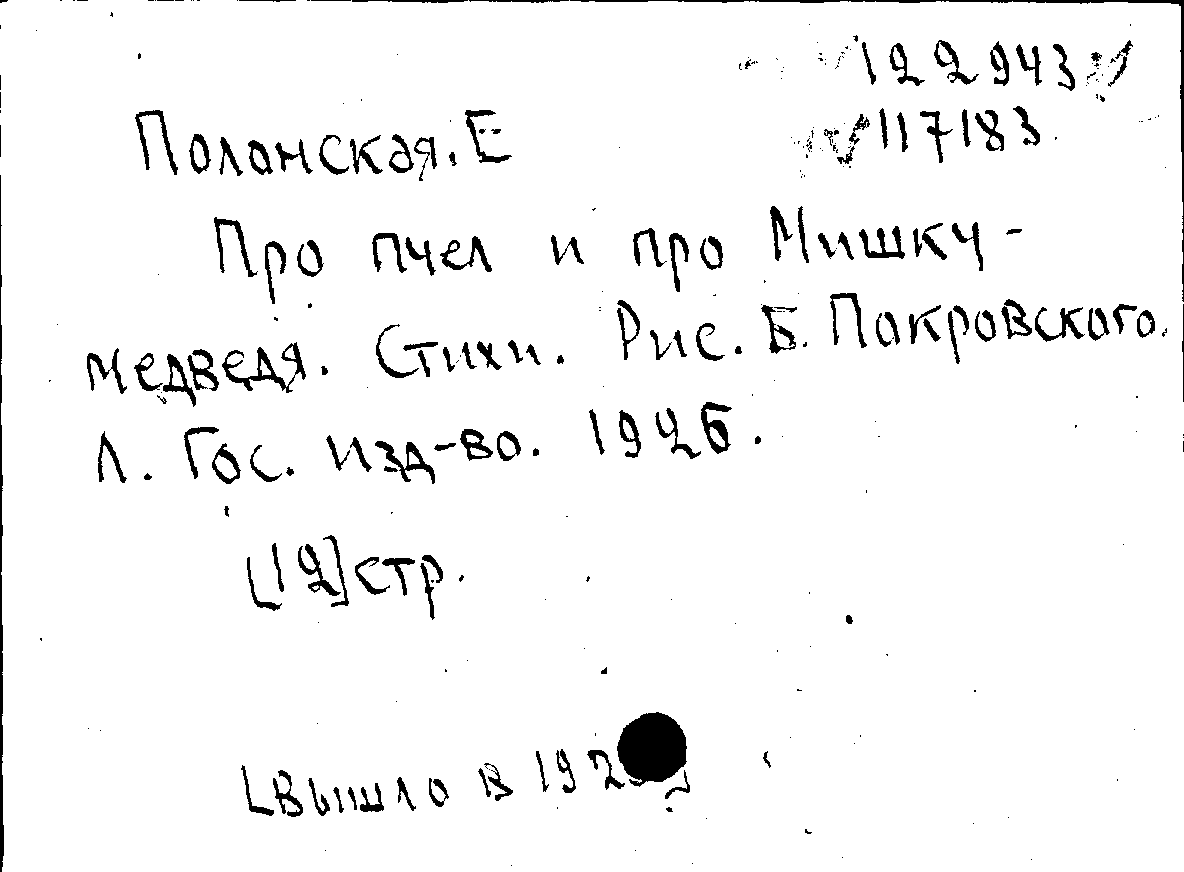 122943
117183
Полонская. Е
Про пчел и про Мишку-
медведя. Стихи. Рис. Б. Покровского.
Л. Гос. изд-во. 1926.
[12] стр.
[Вышло в